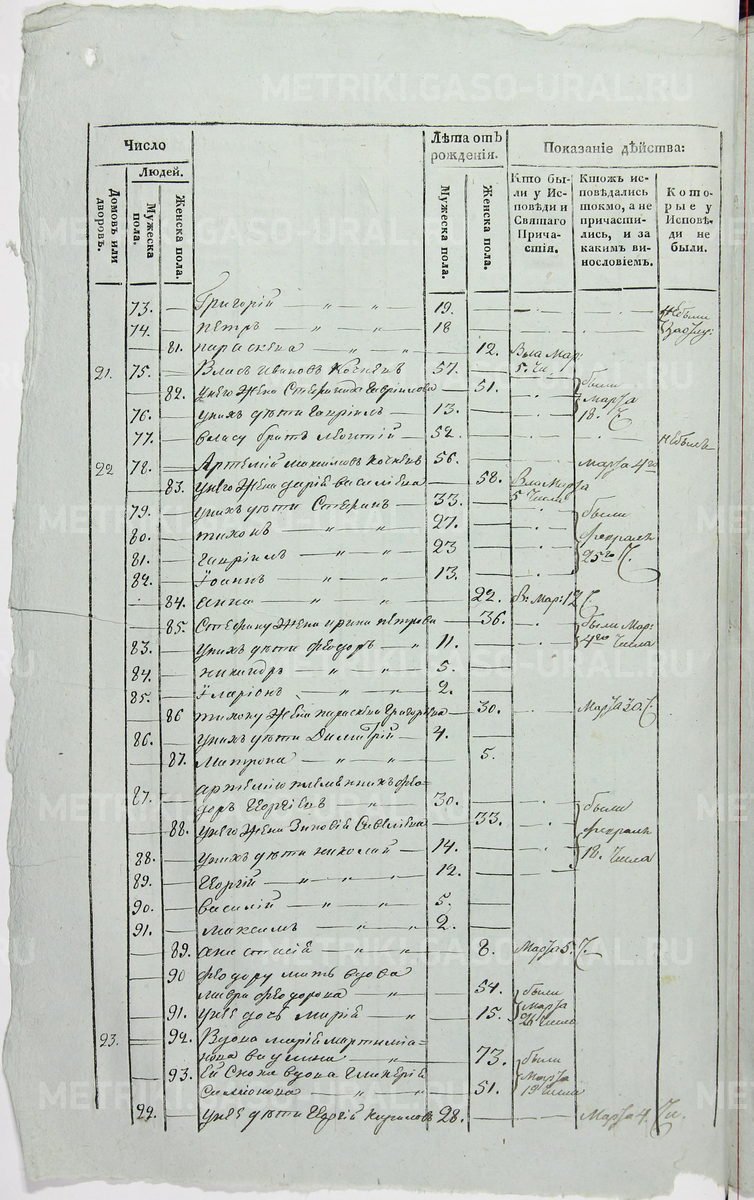 METRIKI.GASO-URAL.RU
Число
Лѣта отъ рожденія.
Показаніе дѣйства:
Людей.
Домовъ или дворовъ.
Мужеска пола.
Женска пола.
Мужеска пола.
Женска пола.
Кто были у Исповѣди и Святаго Причастія.
Ктожъ исповѣдались токмо, а не причастились, и за какимъ винословіемъ.
Которые у Исповѣди не были.
73. Григорій 19. не были
74. Петръ 18
81. Параскева 12. Мар:
21. 75. Власъ Ивановъ 57. 5. Чи,
82. унего Жена Гавріилова 51. были
76. унихъ дѣти Гавріилъ 13. Марта 18. Ч.
77. Власу братъ 52. не былъ
22 78. Артемій Максимовъ 56. Марта 4го
83. унего Жена Дарія Василіева 58. Марта
79. унихъ дѣти Стефанъ 33. 5 Числа были
80. Тихонъ 27. февраля
81. Гавріилъ 23 25го Ч.
82. Іоаннъ 13.
84. Анна 22. Мар: 12 Ч.
85. Стефану Жена Ирина Петрова 36. были Мар:
83. унихъ дѣти Феодоръ 11. 4го Числа
84. Никифоръ 5.
85. Іларіонъ 2.
86 Тихону Жена Параскева Григорьева 30. Марта Ч.
86. унихъ дѣти Димитрій 4.
87. Матрона 5.
87. Артемію племянникъ Фео=
доръ Георгіевъ 30. были
88. унего Жена Зиновія Савеліева 33. февраля
88. унихъ дѣти Николай 14. 18. Числа
89. Георгій 12.
90. Василій 5.
91. Максимъ 2.
89. Анастасія 8. Марта 5. Ч.
90 Феодору мать вдова
Мавра Феодорова 54. были
91. унее дочь Марія 15. Марта Числа
23. 92. Вдова Марія Мартиміа=
нова 73. были
93. Ей Сноха вдова Гликерія Марта
Симіонова 51. 19 Числа
92. унее дѣти Георгій Кириловъ 28. Марта 4. Чи.